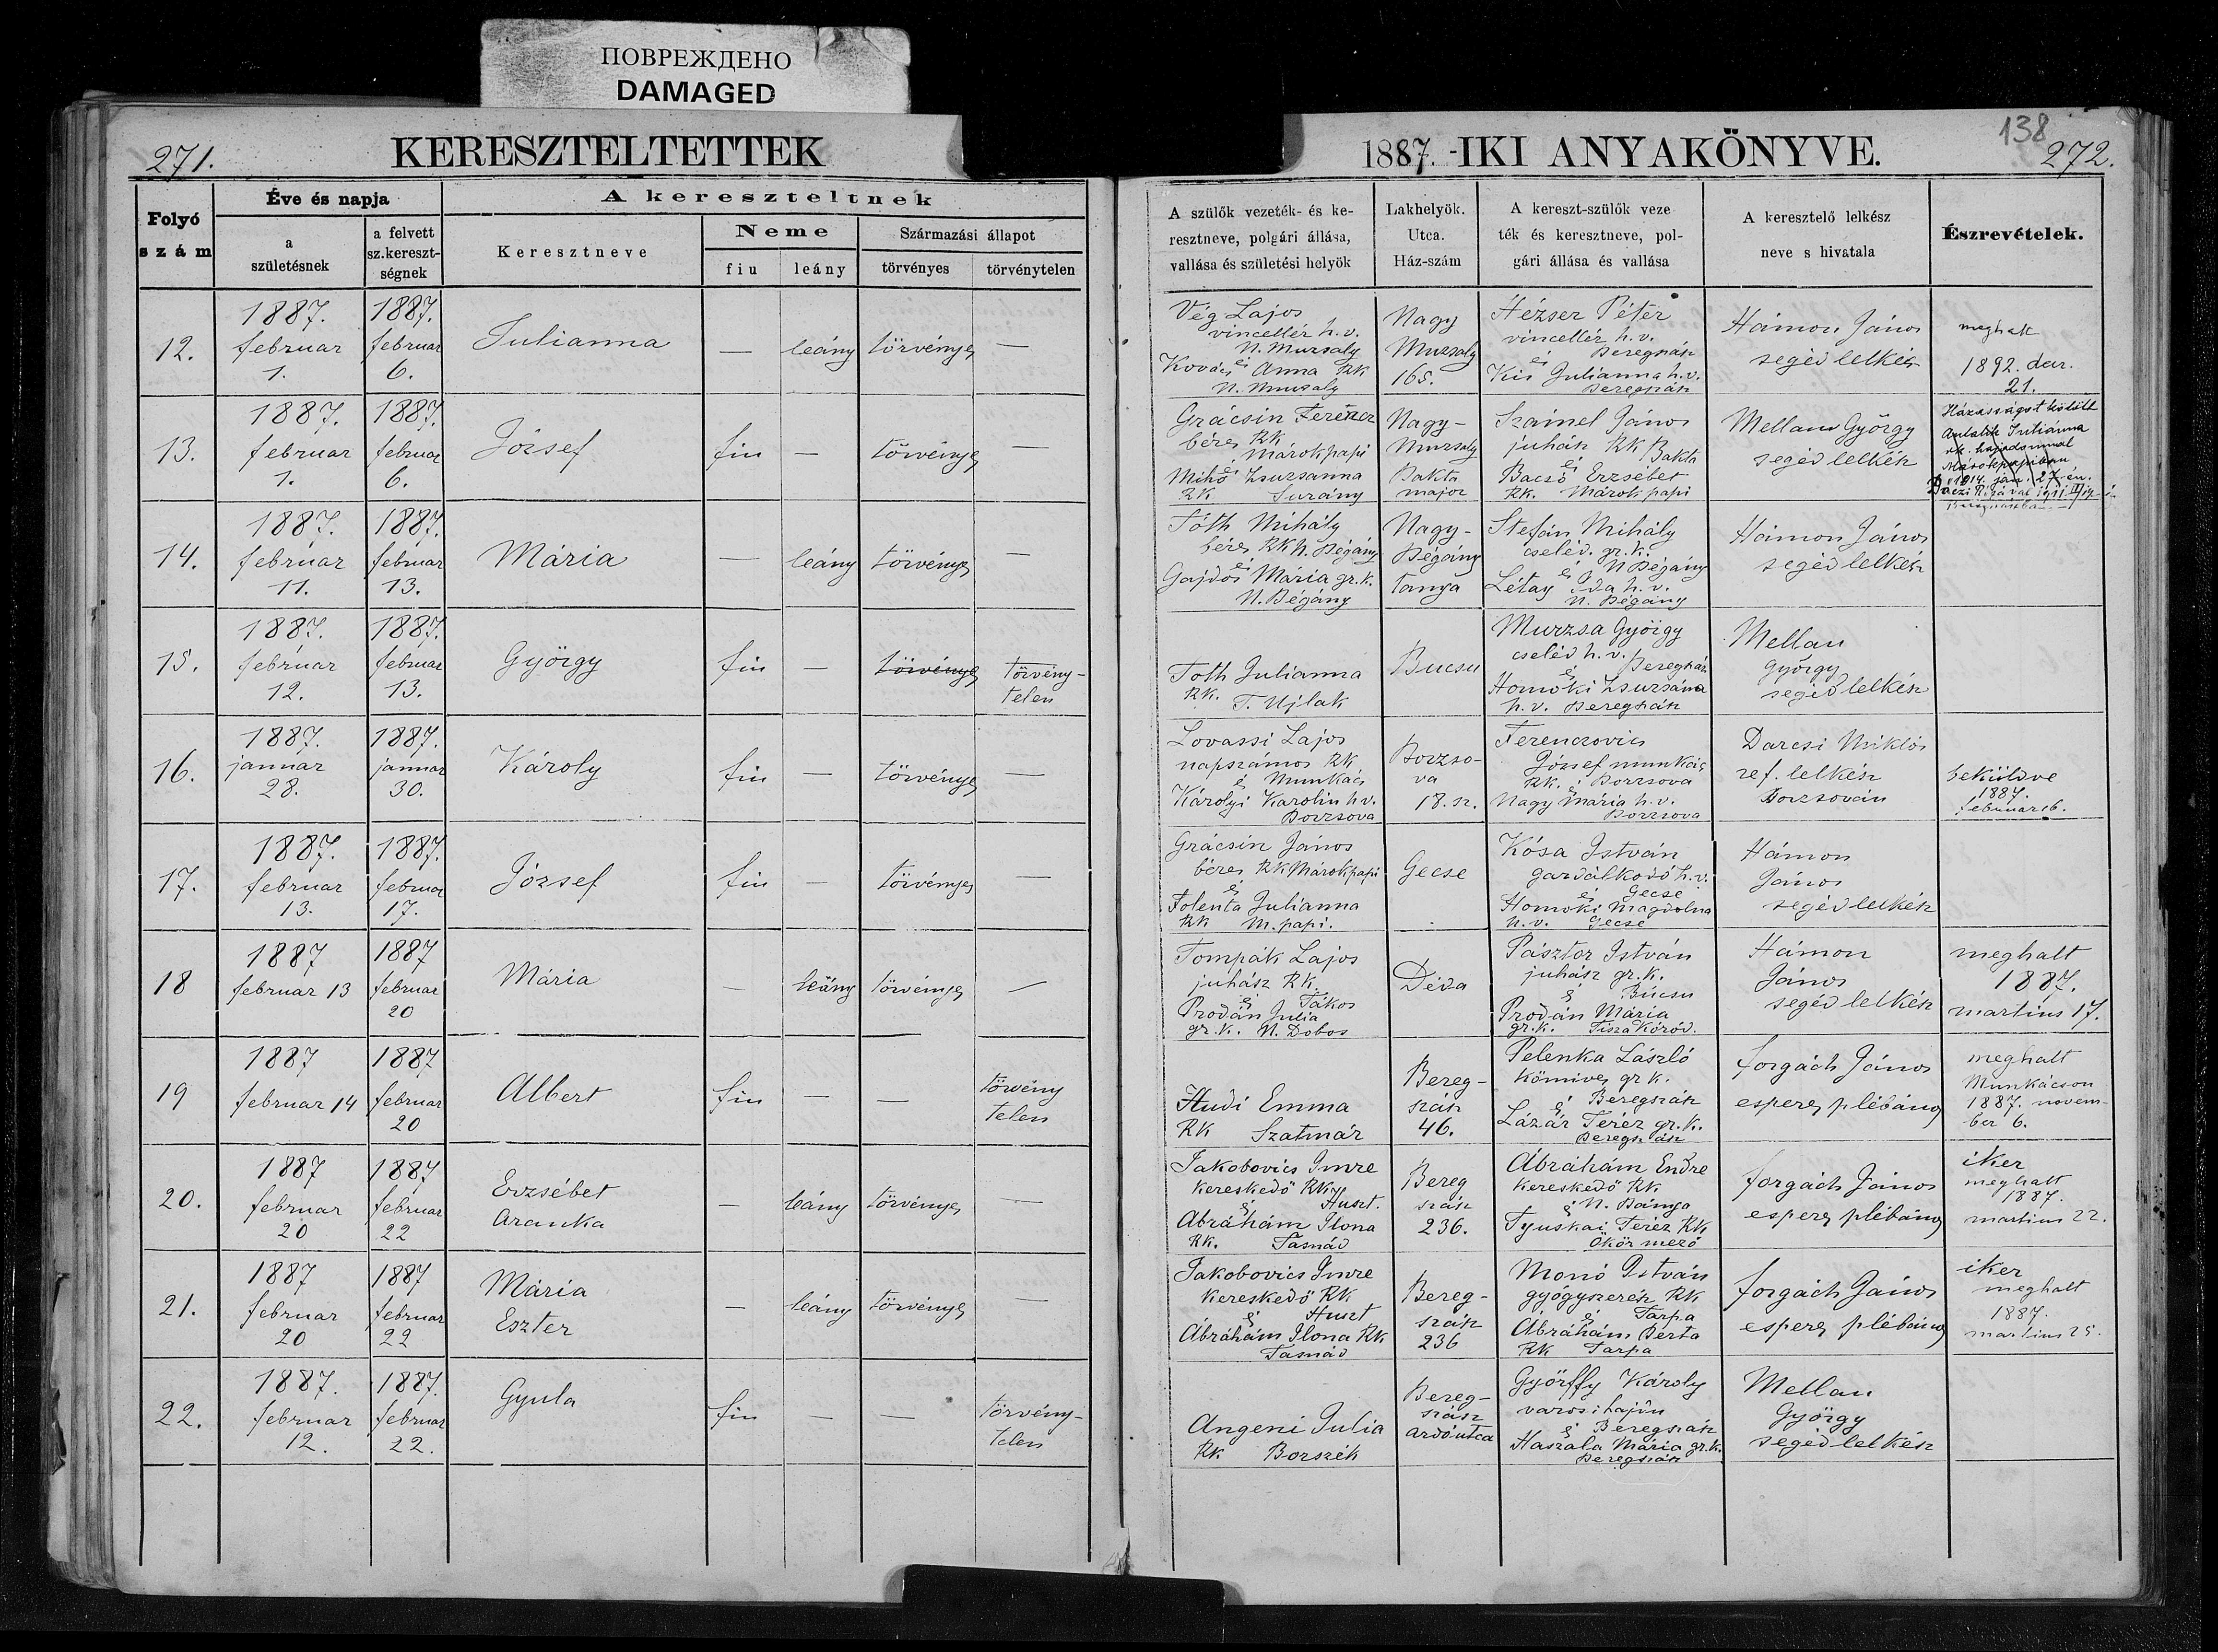 ПОВРЕЖДЕНО
DAMAGED
271.
KERESZTELTETTEK
1887. -IKI ANYAKÖNYVE.
138
272.
Folyó szám
Éve és napja
a születésnek
a felvett sz.kereszt-ségnek
A kereszteltnek
Keresztneve
Neme
fiu
leány
Származási állapot
törvényes
törvénytelen
A szülők vezeték- és ke-
resztneve, polgári állása,
vallása és születési helyök
Lakhelyök.
Utca.
Ház-szám
A kereszt-szülők veze
ték és keresztneve, pol-
gári állása és vallása
A keresztelő lelkész
neve s hivatala
Észrevételek.
12.
1887. februar 1.
1887. februar 6.
Julianna
— leány törvényes —
Vég Lajos
vincellér h.v.
N. Muzsaly
és
Kovács Anna RK
N. Muzsaly
Nagy
Muzsaly
165.
Hézser Péter
vincellér h.v.
és Beregszász
Kis Julianna h.v.
Beregszász
Hámon János
segéd lelkész
meghalt
1892. dec.
21.
13.
1887. februar 1.
1887. februar 6.
József
fiu — törvényes —
Grácsin Ferencz
béres RK
Márokpapi
és
Mihó Zsuzsanna
RK Surány
Nagy-
Muzsaly
Bakta
major
Szämel János
juhász RK Bakta
és
Bacsó Erzsébet
RK. Márokpapi
Mellau György
segéd lelkész
Házasságot kötött
Julianna
rk. hajadonnal
Márokpapiban
1914. jan. 27-én.
14.
1887. február 11.
1887. február 13.
Mária
— leány törvényes —
Tóth Mihály
béres RK N. Bégány
és
Gajdos Mária gr.k.
N. Bégány
Nagy-
Bégány
tanya
Stefán Mihály
cseléd. gr.k.
és N Bégány
Létay Ida h.v.
N. Bégány
Hámon János
segéd lelkész
15.
1887. február 12.
1887. február 13.
György
fiu — törvényes törvény-
telen
Toth Julianna
RK. T. Ujlak
Bucsu
Murzsa György
cseléd h.v.
és Beregszász
Homoki Zsuzsánna
h.v. Beregszász
Mellau
György
segéd lelkész
16.
1887. januar 28.
1887. januar 30.
Károly
fiu — törvényes —
Lovassi Lajos
napszámos RK
és Munkács
Károlyi Karolin h.v.
Borzsova
Borzso-
va
18. sz.
Ferenczovics
József munkás
RK. és Borzsova
Nagy Mária h.v.
Borzsova
Darcsi Miklós
ref. lelkész
Borzsován
beküldve
1887.
17.
1887. februar 13.
1887. februar 17.
József
fiu — törvényes —
Grácsin János
béres RK Márokpapi
és
Folenta Julianna
RK M. papi.
Gecse
Kósa István
gazdálkodó h.v.
és Gecse
Homoki Magdolna
h.v. Gecse
Hámon
János
segéd lelkész
18
1887 februar 13
1887 februar 20
Mária
— leány törvényes —
Tompák Lajos
juhász RK.
és Tákos
Prodán Julia
gr.k. N. Dobos
Déda
Pásztor István
juhász gr.k.
és Bucsu
Prodán Mária
gr.k. Tisza Kóród.
Hámon
János
segéd lelkész
meghalt
1887.
martius 17.
19
1887 februar 14
1887 februar 20
Albert
fiu — — törvény
telen
Hudi Emma
RK Szatmár
Bereg-
szász
46.
Pelenka László
kömives gr k.
és Beregszász
Lázár Teréz gr.k.
Beregszász
Forgách János
esperes plébános
meghalt
Munkácson
1887. novem-
ber 6.
20.
1887 februar 20
1887 februar 22
Erzsébet
Aranka
— leány törvényes —
Jakobovics Imre
kereskedő RK
és Huszt.
Ábráhám Ilona
RK. Tasnád
Bereg
szász
236.
Ábráhám Endre
kereskedő RK
és N. Bánya
Tyuskai Teréz RK
Ökör mező
Forgách János
esperes plébános
iker
meghalt
1887.
martius 22.
21.
1887 februar 20
1887 februar 22
Mária
Eszter
— leány törvényes —
Jakobovics Imre
kereskedő RK
és Huszt
Ábráhám Ilona RK
Tasnád
Bereg-
szász
236
Monó István
gyógyszerész RK
és Tarpa
Ábráhám Berta
RK Tarpa
Forgách János
esperes plébános
iker
meghalt
1887.
martius 25.
22.
1887. februar 12.
1887. februar 22.
Gyula
fiu — — törvény-
telen
Angeni Julia
RK Borszék
Bereg-
szász
ardóutca
Györffy Károly
városi hajdu
és Beregszász
Haszala Mária gr.k.
Beregszász
Mellau
György
segéd lelkész